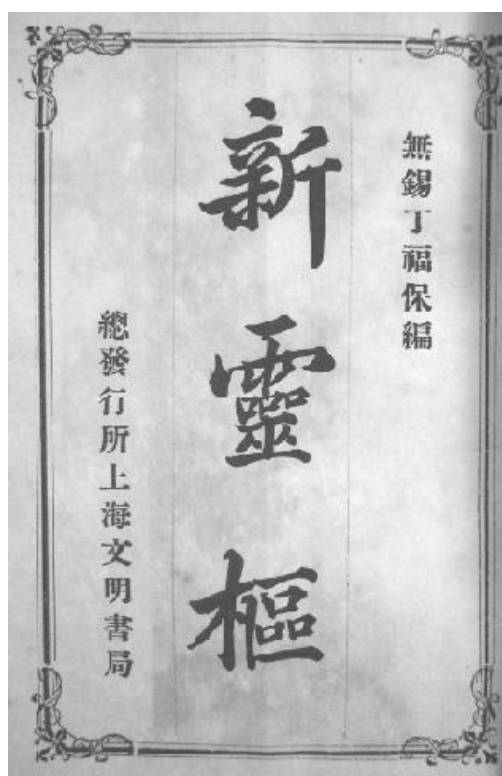 無錫丁福保編
新靈樞
總發行所上海文明書局